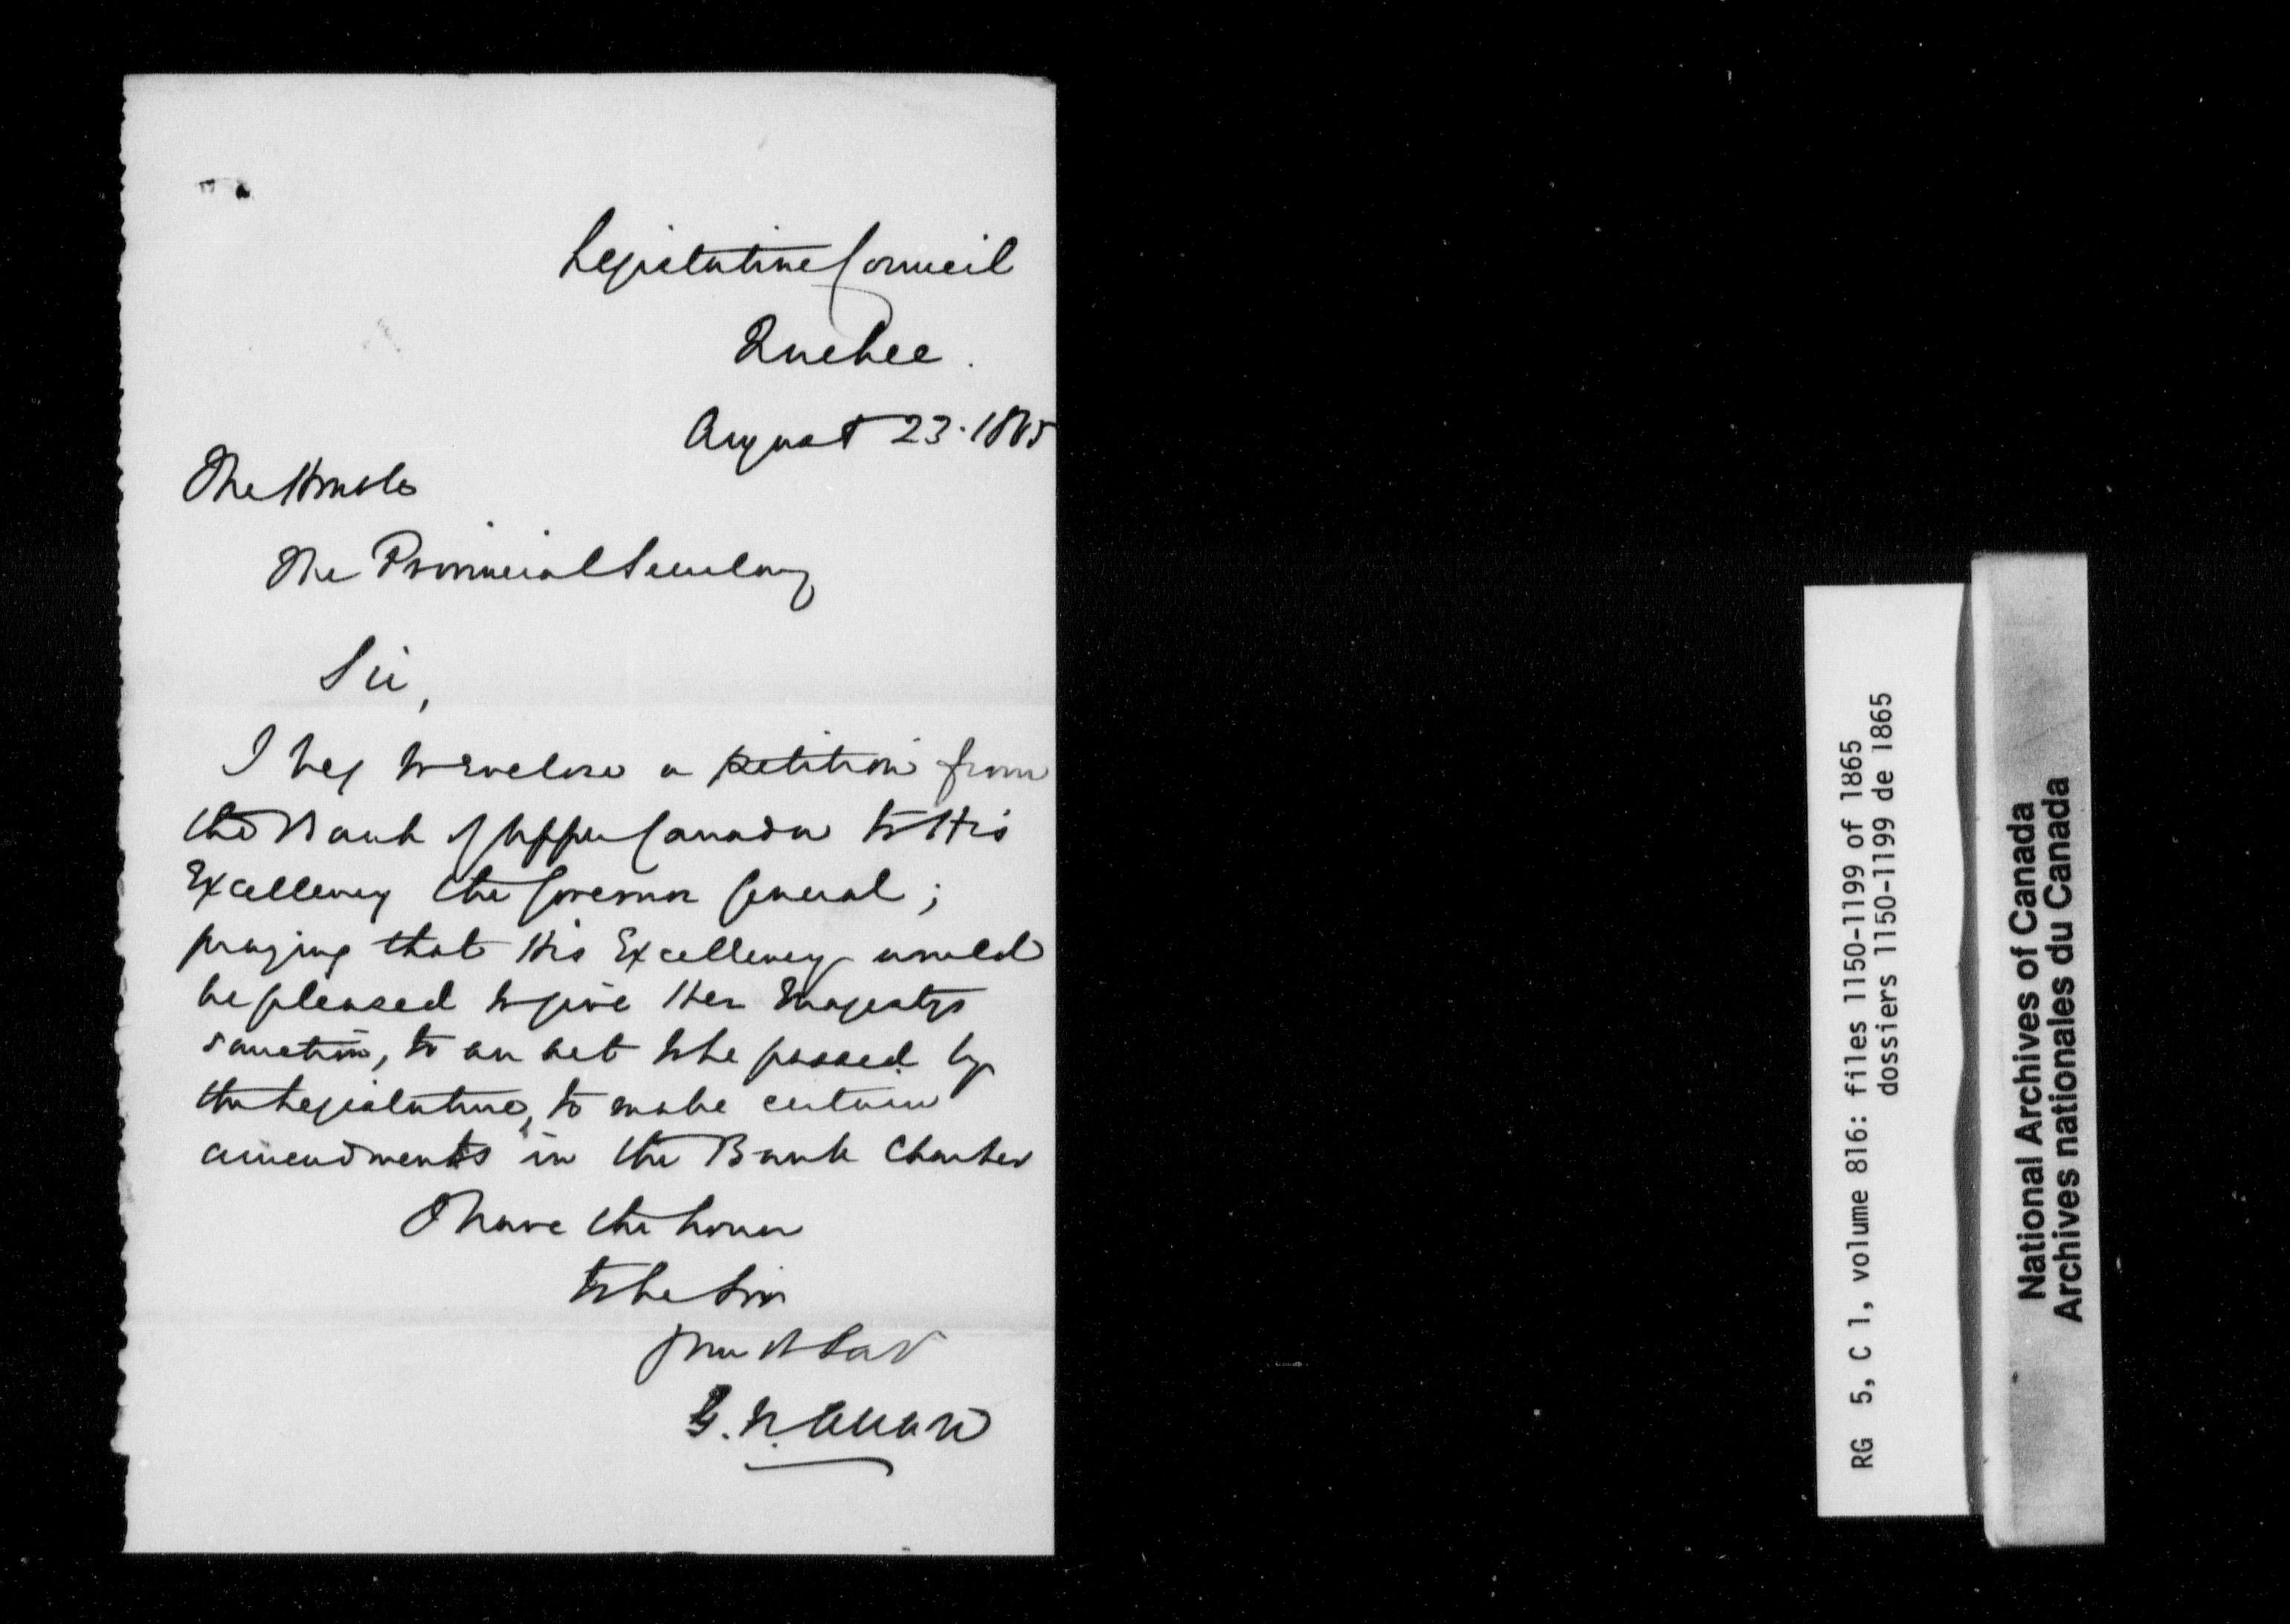 Legislative Council
Quebec.
August 23. 1865
The Honble
The Provincial Secretary
Sir,
I beg to enclose a petition from
the Bank of Upper Canada to His
Excellency the Governor General;
praying that His Excellency would
be pleased to give Her Majestys
sanction, to an act to be passed by
the Legislature, to make certain
amendments in the Bank Charter
I have the honor
to be Sir
Your Ob Sert
G. W. Allan
RG 5, C 1, volume 816: files 1150-1199 of 1865
dossiers 1150-1199 de 1865
National Archives of Canada
Archives nationales du Canada